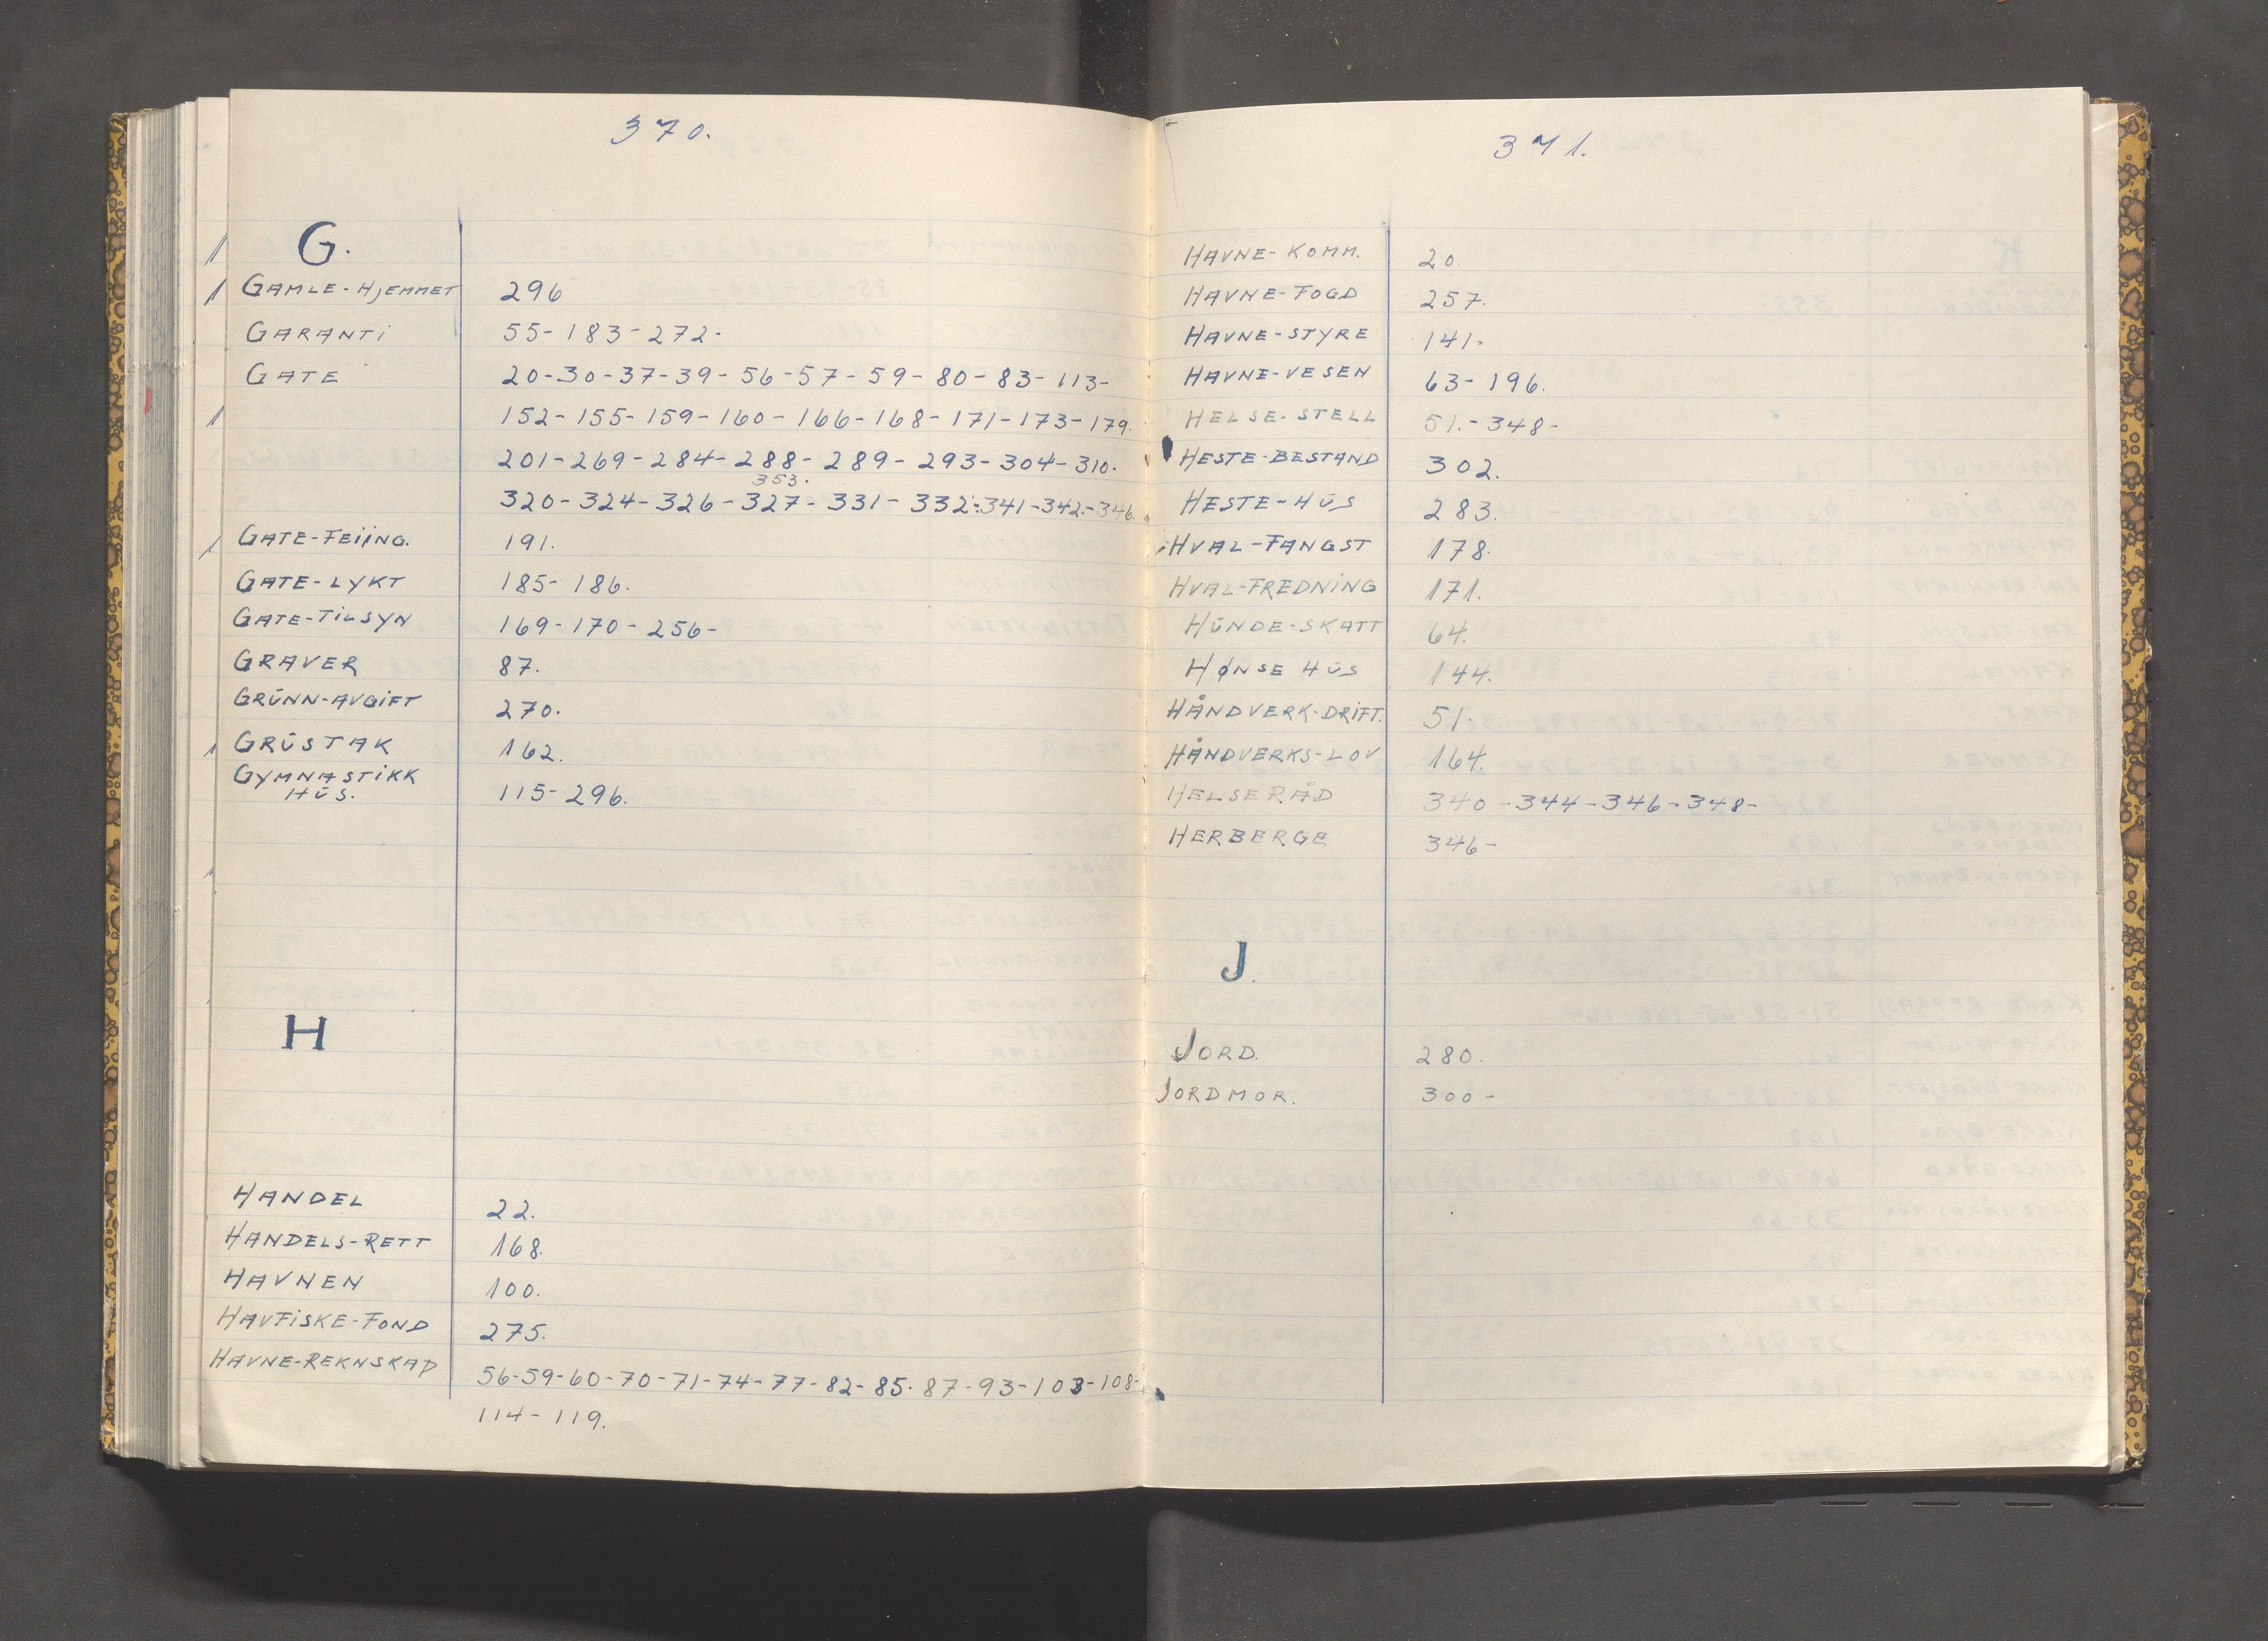 370.
G.
GAMLE-HJEMMET 296
GARANTI 55-183-272-
GATE 20-30-37-39-56-57-59-80-83-113-
152-155-159-160-166-168-171-173-179.
201-269-284-288-289-293-304-310.
353.
320-324-326-327-331-332-341-342-346.
GATE-FEIING. 191.
GATE-LYKT 185-186.
GATE-TILSYN 169-170-256-
GRAVER 87.
GRŪNN-AVGIFT 270.
GRŪSTAK 162.
GYMNASTIKK
HŪS. 115-296.
H
HANDEL 22.
HANDELS-RETT 168.
HAVNEN 100.
HAVFISKE-FOND 275.
HAVNE-REKNSKAP 56-59-60-70-71-74-77-82-85-87-93-103-108-
114-119.
371.
HAVNE-KOMM. 20.
HAVNE-FOGD 257.
HAVNE-STYRE 141.
HAVNE-VESEN 63-196.
HELSE-STELL 51.-348-
HESTE-BESTAND 302.
HESTE-HŪS 283.
HVAL-FANGST 178.
HVAL-FREDNING 171.
HŪNDE-SKATT 64.
HØNSE HŪS 144.
HÅNDVERK-DRIFT. 51.
HÅNDVERKS-LOV 164.
HELSERÅD 340-344-346-348-
HERBERGE 346-
J.
JORD. 280.
JORDMOR. 300-